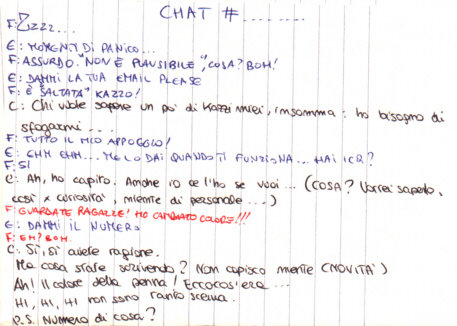 CHAT # ........
F: Zzzz...
E: MOMENTI DI PANICO...
F: ASSURDO. "NON È PLAUSIBILE", COSA? BOH!
E: DAMMI LA TUA EMAIL PLEASE
F: È "SALTATA" KAZZO!
C: Chi vuole sapere un po' di Kazzi miei, insomma: ho bisogno di
sfogarmi...
F: TUTTO IL MIO APPOGGIO!
E: EHM EHM... ME LO DAI QUANDO TI FUNZIONA... HAI ICQ?
F: SI
C: Ah, ho capito. Anche io ce l'ho se vuoi... (COSA? Vorrei saperlo,
così x curiosità, niente di personale...)
F: GUARDATE RAGAZZE! HO CAMBIATO COLORE!!!
E: DAMMI IL NUMERO
F: EH? BOH.
C: Sì, sì avete ragione.
Ma cosa state scrivendo? Non capisco niente (NOVITÀ)
Ah! Il colore della penna! Eccocos'era...
Hi, Hi, Hi non sono tanto scema.
P.S. Numero di cosa?